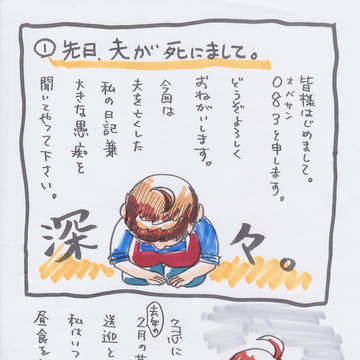 ①先日、夫が死にまして。
皆様はじめまして。
オバサン
083と申します。
どうぞよろしく
おねがいします。
今回は
夫を亡くした
私の日記兼
大きな愚痴を
聞いてやって下さい。
深々。
去年の
2月の
送迎と
私はいつ
昼食を